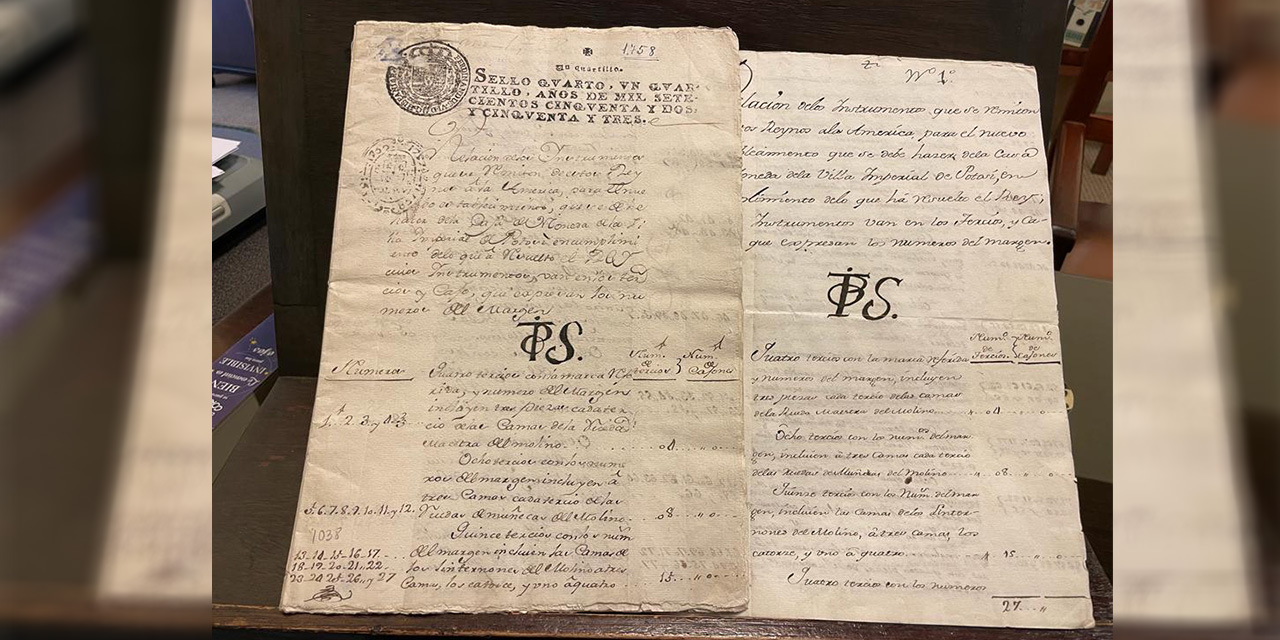 1758
Un quartillo.
SELLO QVARTO, VN QVAR-
TILLO, AÑOS DE MIL SETE-
CIENTOS CINQVENTA Y DOS,
Y CINQVENTA Y TRES.
Relacion delos Instrumentos
que se Remiten destos Rey
nos à la America, para
hacer dela de Moneda de la
Imperial de Potosi en cumplimi
ento delo que à Resuelto el Rey
cuios Instrumentos, van en los ter
cios y que expresan los nu
meros del Margen
PTS.
Numeros
Num.s de tercios
Num.s de Caxones
Quatro tercios con la marca Re
y numero del Margen
incluyen tres piezas cada ter
cio delas Camas de la Rueda
Maestra del molino.
1. 2. 3. y 4
04
Ocho tercios con los nume
ros del margen incluyen à
tres Camas cada tercio de las
5. 6. 7. 8. 9. 10. 11. y 12.
Ruedas de muñecas del Molino
08
1038
Quince tercios con los num
13-14-15-16-17
del margen incluien las Camas de
18-19-20-21-22
las linternones del Molino à tres
23-24-25-26, y 27
Camas, los catorce, y uno à quatro
15
Nº 1º
lacion delos Instrumentos, que se remiten
os Reynos ala America, para el nuevo
blecimiento que se debe hazer, dela Casa
oneda dela Villa Imperial de Potosi, en
limiento delo que há resuelto el Rey;
Instrumentos van en los Tercios, y Ca-
que expresan los numeros del margen.
PTS.
Num.s de Tercios.
Num.s de Caxones
Quatro tercios con la marca referida
y numeros del margen, incluyen
tres piezas cada tercio de las camas
de la Rueda Maestra del Molino
04
Ocho tercios con los num.os del mar
gen, incluien à tres Camas cada tercio
delas Ruedas de Muñecas del Molino
08
Quinze tercios con los Num.s del mar
gen, incluien las Camas de los Linter-
nones del Molino, à tres Camas, los
catorze, y uno à quatro
15
Quatro tercios con los numeros
27
BIEN
INVISIBLE